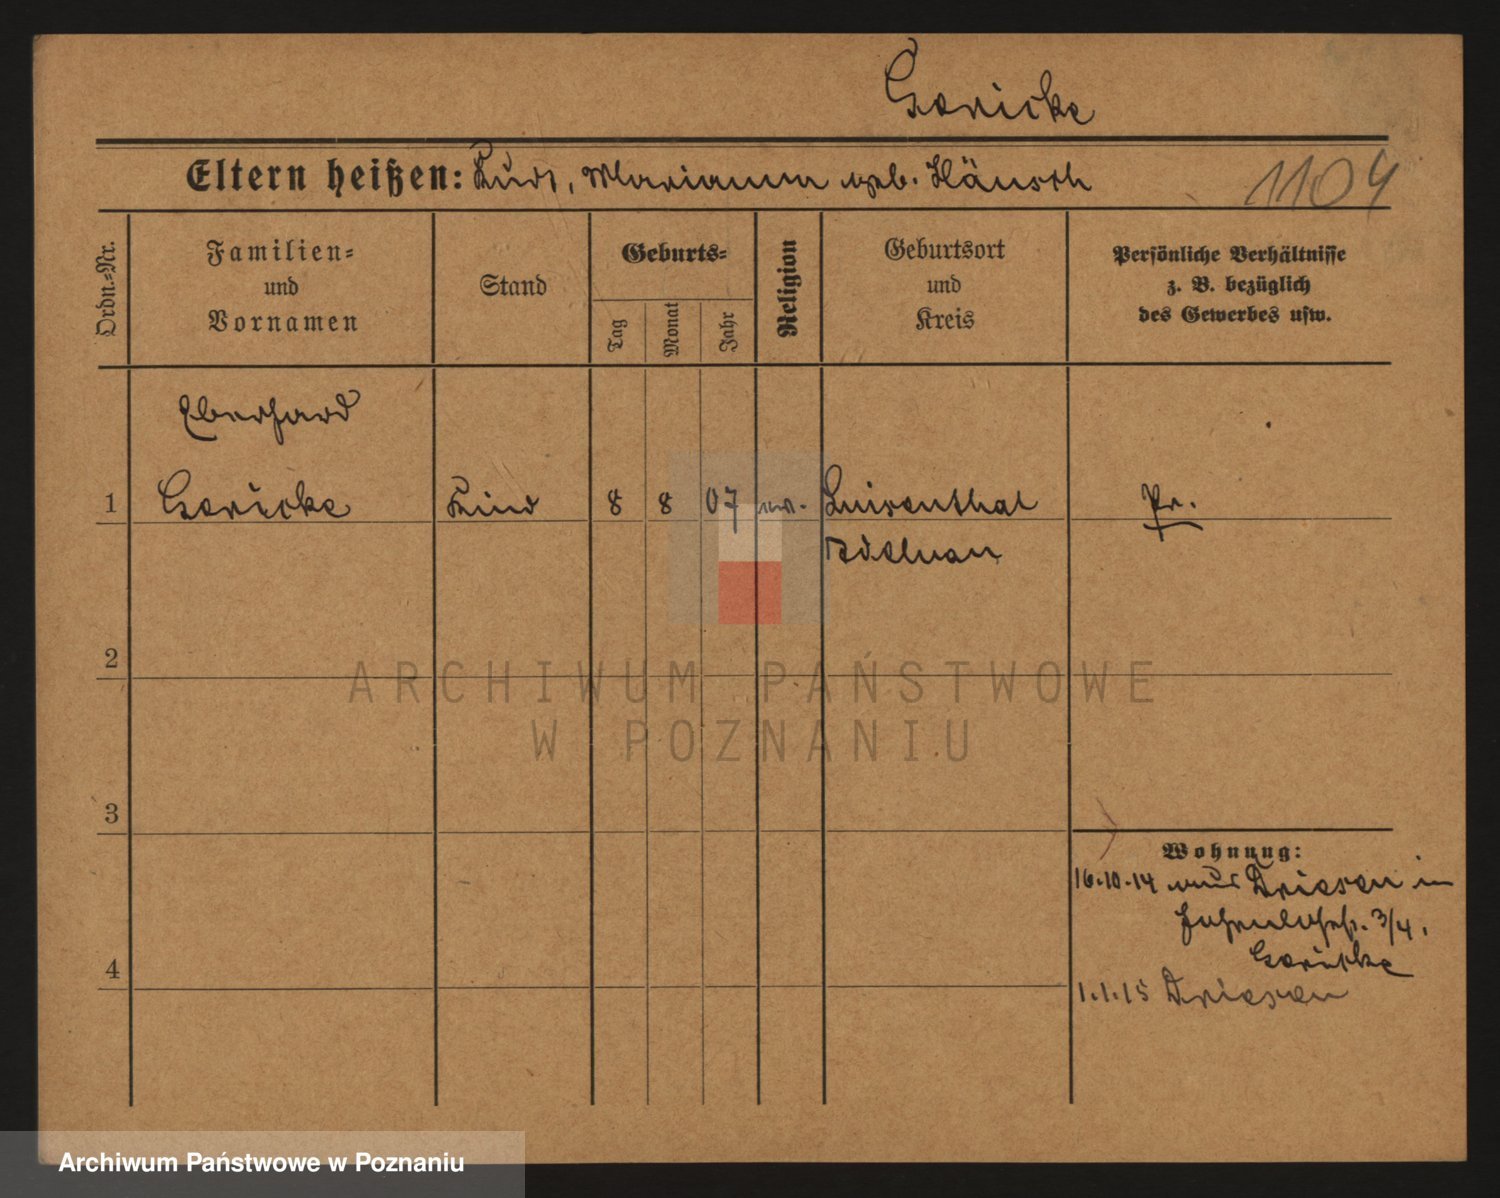 Gericke
Eltern heißen: Kurt, Marianne geb. Hänsch
1104
Ordn.-Nr.
Familien-
und
Vornamen
Stand
Geburts-
Tag
Monat
Jahr
Religion
Geburtsort
und
Kreis
Persönliche Verhältnisse
z. B. bezüglich
des Gewerbes usw.
Eberhard
1 Gericke Kind 8 8 07 ev. Luisenthal Pr.
2
3
Wohnung:
16.10.14 aus Driesen in
3/4,
Gericke
4
1.1.15 Driesen
ARCHIWUM PAŃSTWOWE
W POZNANIU
Archiwum Państwowe w Poznaniu